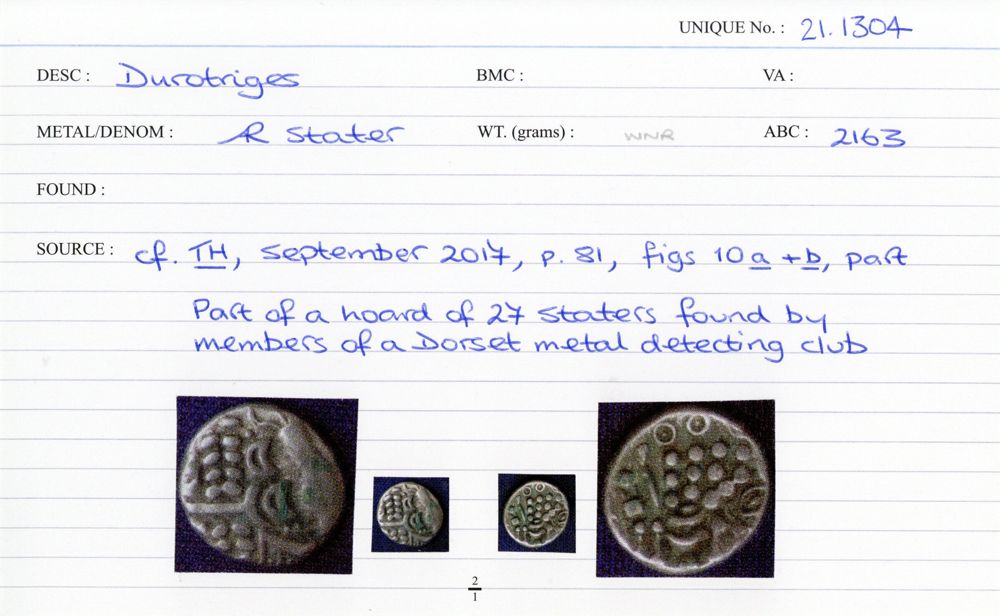 UNIQUE No. : 21.1304
DESC : Durotriges BMC : VA :
METAL/DENOM : Æ Stater WT. (grams) : WNR ABC : 2163
FOUND :
SOURCE : cf. TH, September 2017, p. 81, figs 10a + b, part
Part of a hoard of 27 staters found by
members of a Dorset metal detecting club
2
1